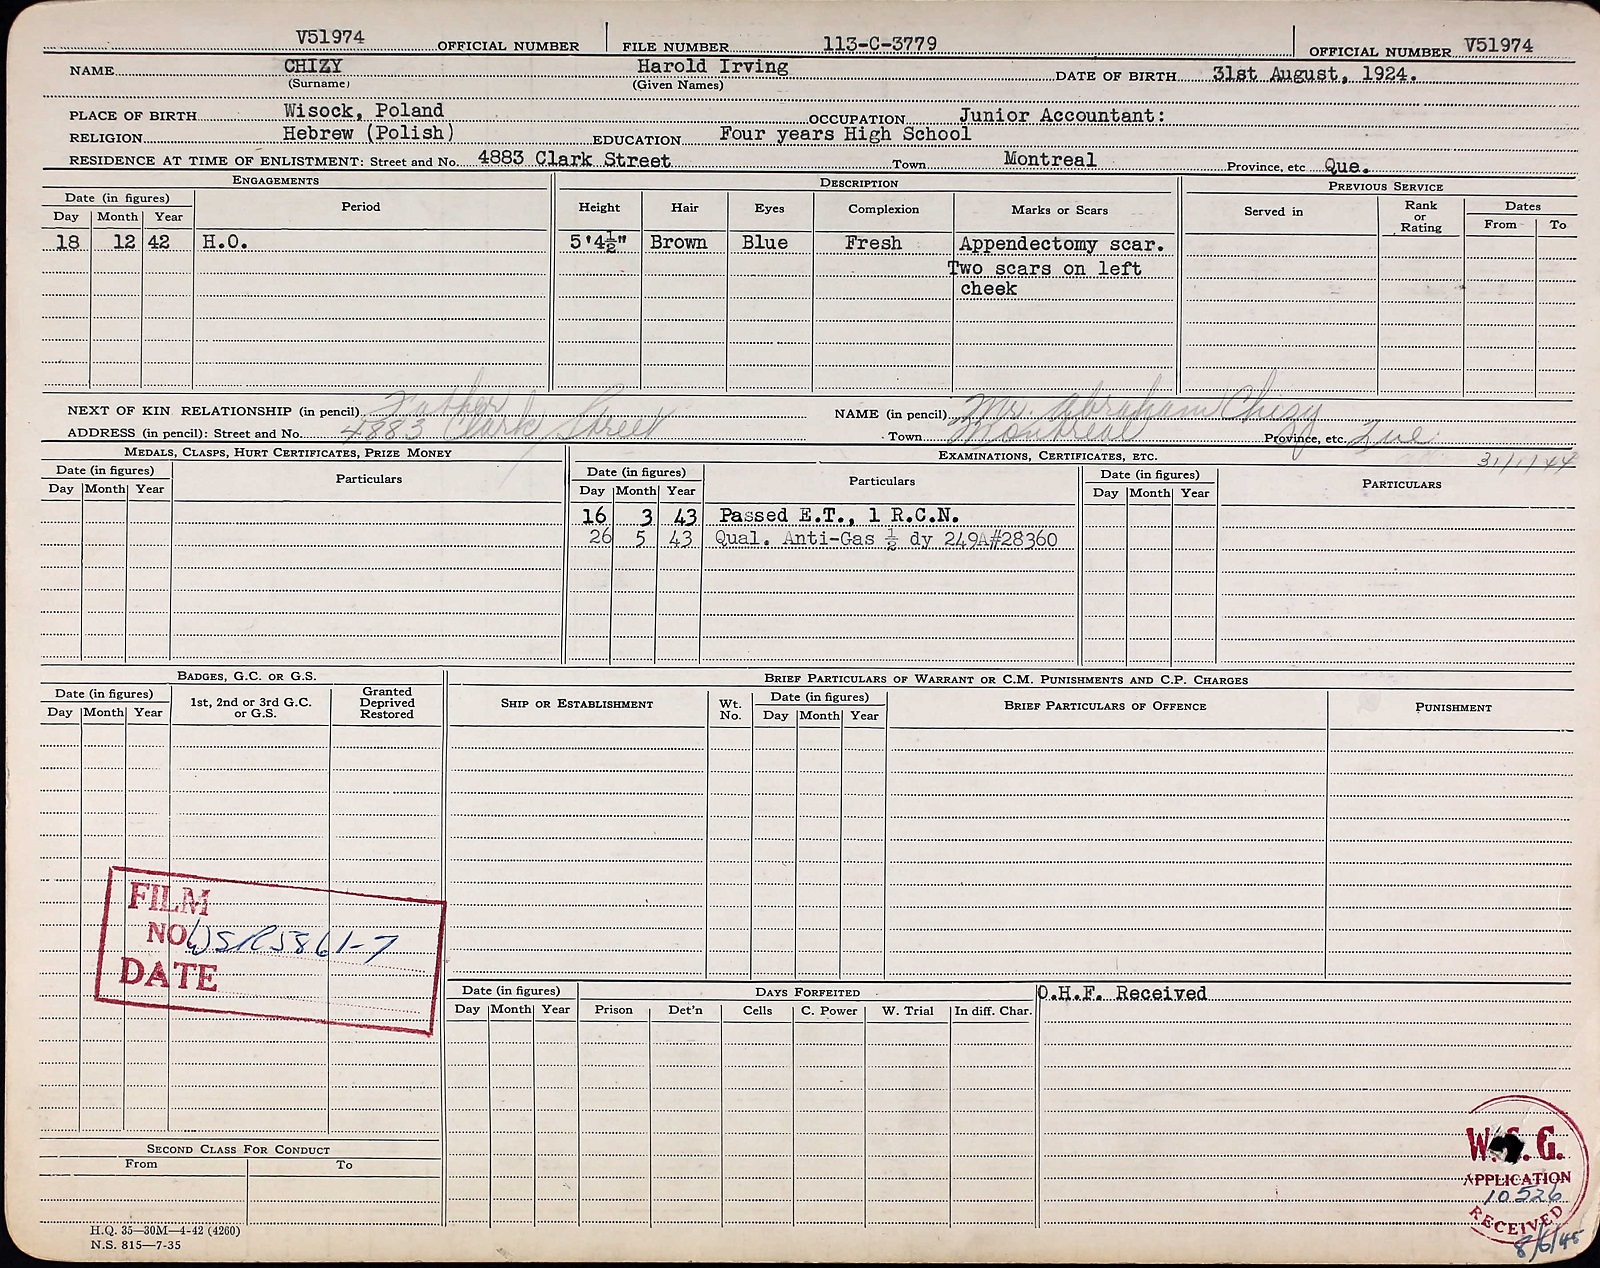 V51974 OFFICIAL NUMBER FILE NUMBER 113-C-3779 OFFICIAL NUMBER V51974
NAME CHIZY Harold Irving DATE OF BIRTH 31st August, 1924.
(Surname) (Given Names)
PLACE OF BIRTH Wisock, Poland OCCUPATION Junior Accountant:
RELIGION Hebrew (Polish) EDUCATION Four years High School
RESIDENCE AT TIME OF ENLISTMENT: Street and No. 4883 Clark Street Town Montreal Province, etc Que.
ENGAGEMENTS DESCRIPTION PREVIOUS SERVICE
Date (in figures) Period Height Hair Eyes Complexion Marks or Scars Served in Rank or Rating Dates
Day Month Year From To
18 12 42 H.O. 5'4½" Brown Blue Fresh Appendectomy scar.
Two scars on left
cheek
NEXT OF KIN RELATIONSHIP (in pencil) Father NAME (in pencil) Mr. Abraham Chizy
ADDRESS (in pencil): Street and No. 4883 Clark Street Town Montreal Province, etc. Que
31/1/44
MEDALS, CLASPS, HURT CERTIFICATES, PRIZE MONEY EXAMINATIONS, CERTIFICATES, ETC.
Date (in figures) Particulars Date (in figures) Particulars Date (in figures) PARTICULARS
Day Month Year Day Month Year Day Month Year
16 3 43 Passed E.T., 1 R.C.N.
26 5 43 Qual. Anti-Gas ½ dy 249A#28360
BADGES, G.C. OR G.S. BRIEF PARTICULARS OF WARRANT OR C.M. PUNISHMENTS AND C.P. CHARGES
Date (in figures) 1st, 2nd or 3rd G.C. or G.S. Granted Deprived Restored SHIP OR ESTABLISHMENT Wt. No. Date (in figures) BRIEF PARTICULARS OF OFFENCE PUNISHMENT
Day Month Year Day Month Year
FILM
NO WSR5861-7
DATE
Date (in figures) DAYS FORFEITED O.H.F. Received
Day Month Year Prison Det'n Cells C. Power W. Trial In diff. Char.
SECOND CLASS FOR CONDUCT
From To
W.S.G.
APPLICATION
10526
RECEIVED
8/6/45
H.Q. 35—30M—4-42 (4260)
N.S. 815—7-35